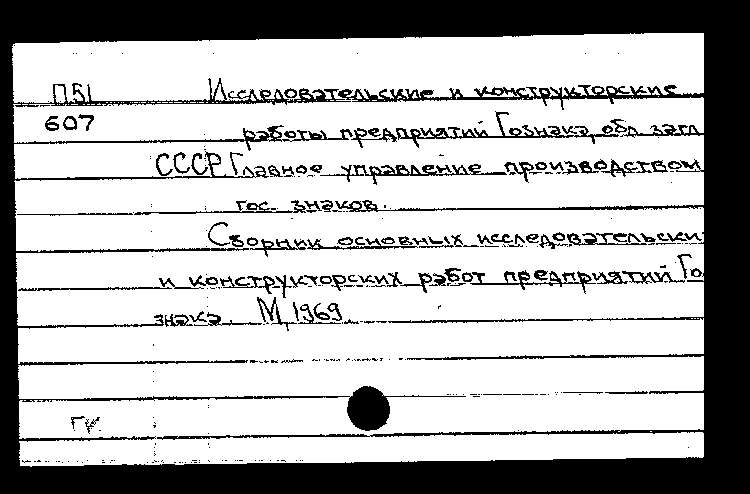 П51 Исследовательские и конструкторские
607 работы предприятий Гознака, обл. загл
СССР. Главное управление производством
гос. знаков.
Сборник основных исследовательски
и конструкторских работ предприятий Го
знака. М, 1969.